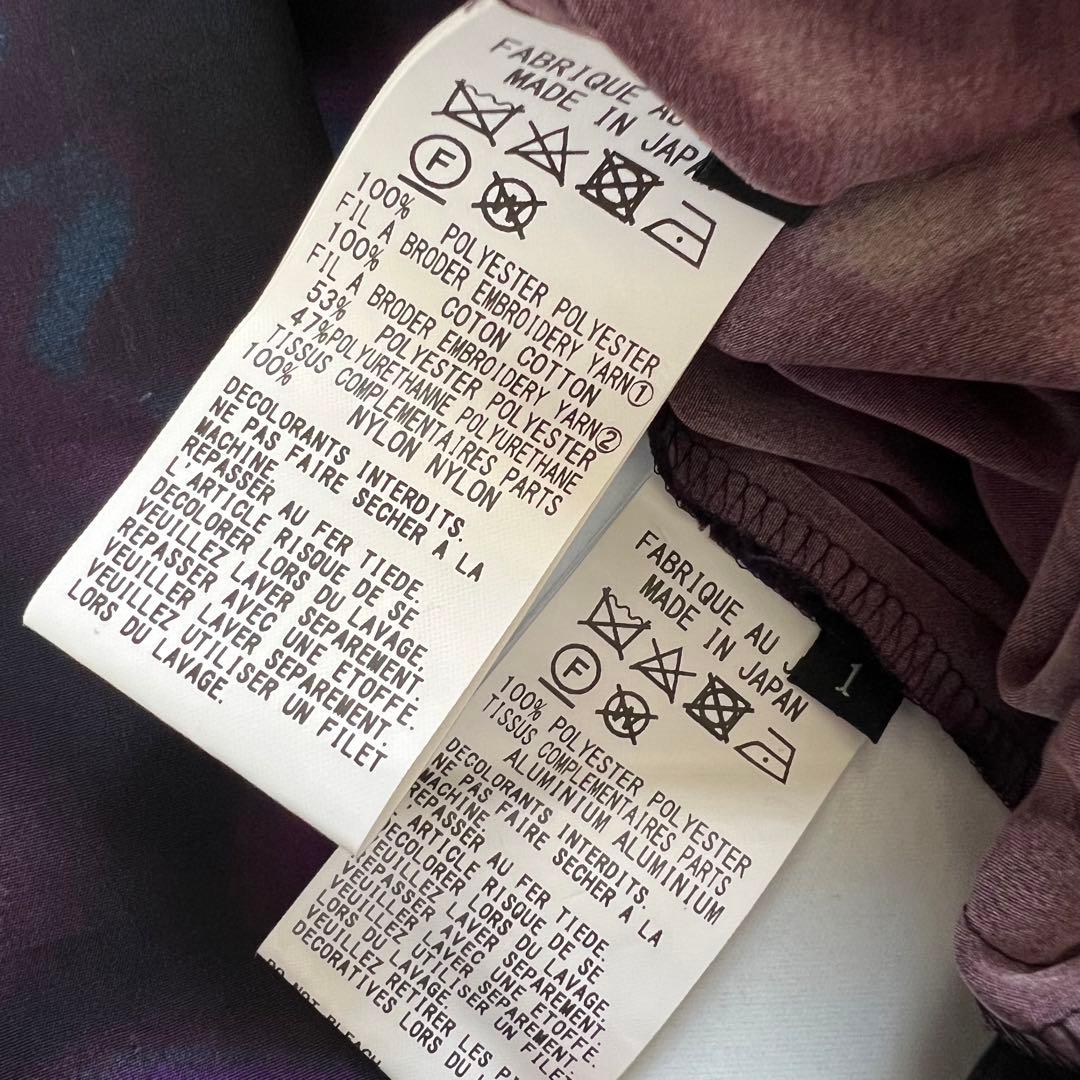 FABRIQUE AU
MADE IN JAPA
F
W
100% POLYESTER POLYESTER
FIL A BRODER EMBROIDERY YARN①
100% COTON COTTON
FIL A BRODER EMBROIDERY YARN②
53% POLYESTER POLYESTER
47%POLYURETHANNE POLYURETHANE
TISSUS COMPLEMENTAIRES PARTS
100% NYLON NYLON
DECOLORANTS INTERDITS.
NE PAS FAIRE SECHER A LA
MACHINE.
REPASSER AU FER TIEDE.
L'ARTICLE RISQUE DE SE
DECOLORER LORS DU LAVAGE.
VEUILLEZ LAVER SEPAREMENT.
REPASSER AVEC UNE ETOFFE.
VEUILLER LAVER SEPAREMENT.
VEUILLEZ UTILISER UN FILET
LORS DU LAVAGE.
FABRIQUE AU J
MADE IN JAPAN
F
W
1
100% POLYESTER POLYESTER
TISSUS COMPLEMENTAIRES PARTS
ALUMINIUM ALUMINIUM
DECOLORANTS INTERDITS.
NE PAS FAIRE SECHER A LA
MACHINE.
REPASSER AU FER TIEDE.
ARTICLE RISQUE DE SE
ECOLORER LORS DU LAVAGE.
VEUILLEZ LAVER SEPAREMENT
REPASSER AVEC UNE ETOFFE.
VEUILLER UTILISER UN FILET
LORS DU LAVAGE.
VEUILLEZ RETIRER LES P
DECORATIVES LORS DU L
DO NOT BLEACH